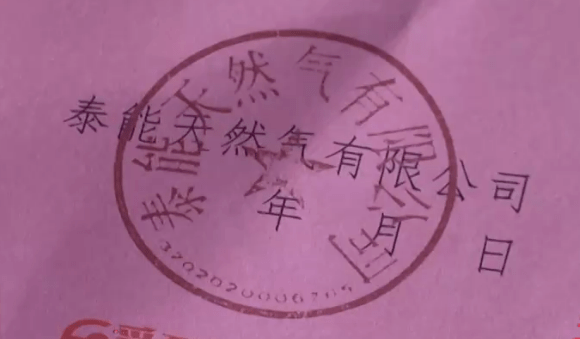 泰能天然气有限公司
泰能天然气有限公司
年 月 日